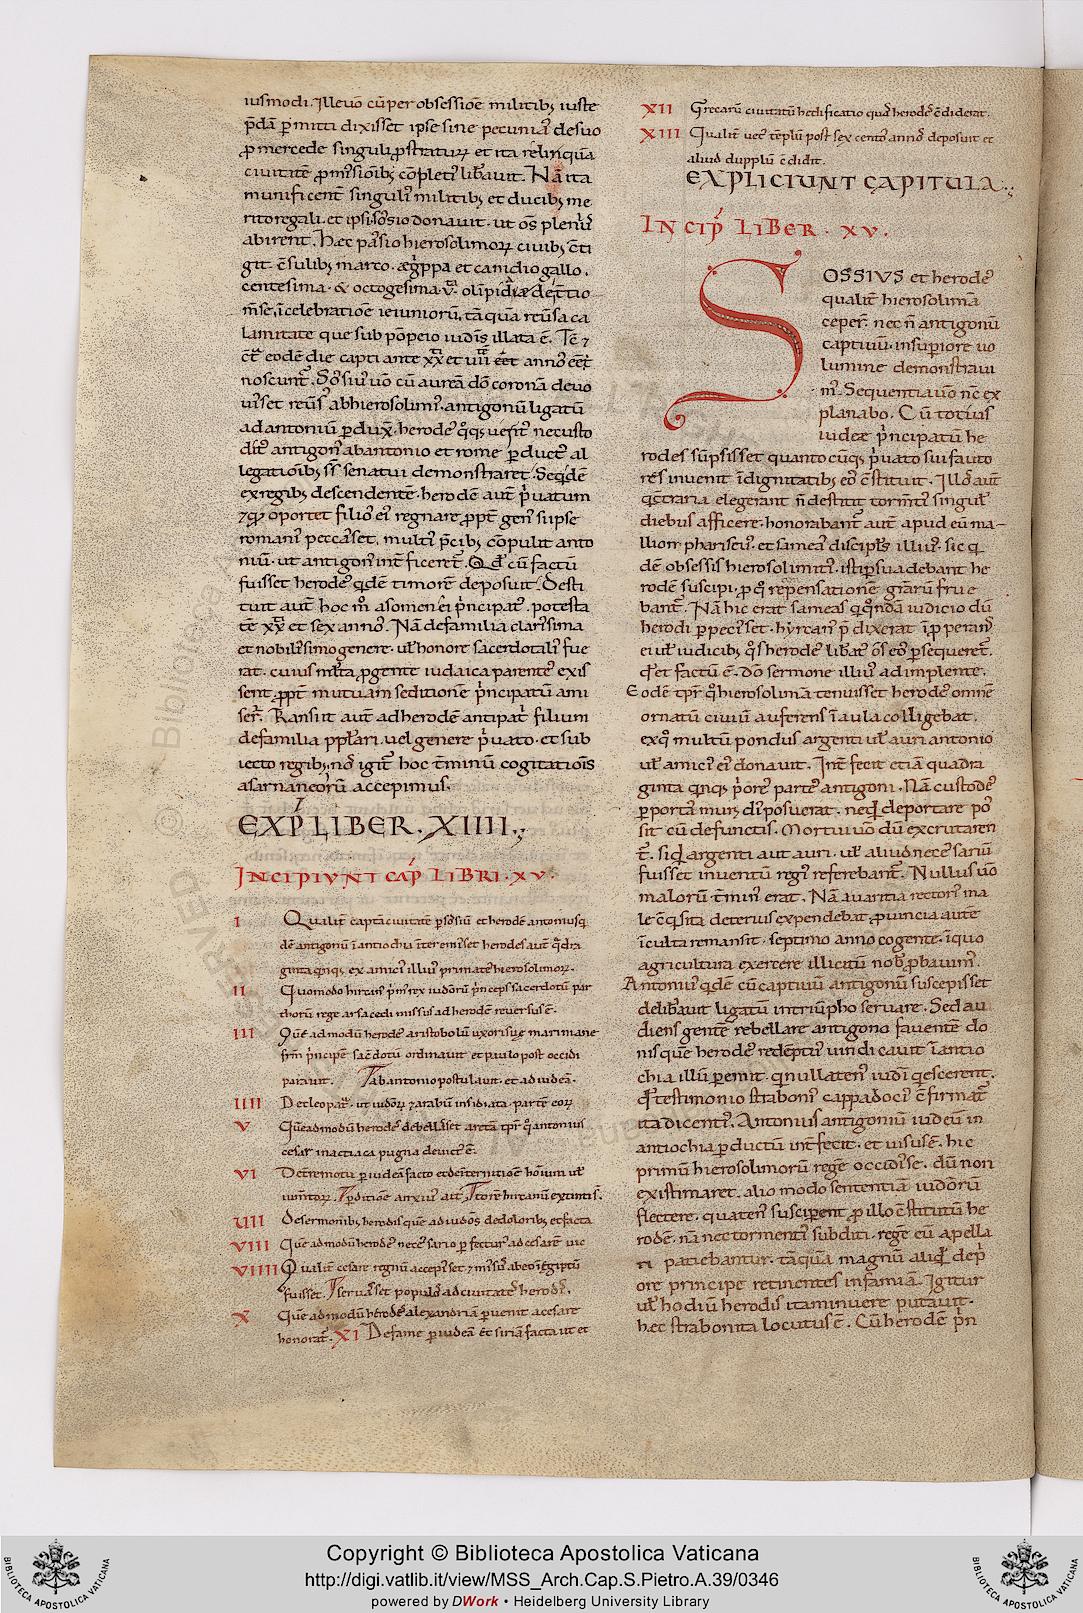 iusmodi. Ille uō cū per obsessionē militibꝫ iuste
p̄dā pmitti dixisset ipse sine pecunia de suo
ꝓ mercede singuli ꝓstraturꝝ et ita relinquā
ciuitatē ꝓmisionibꝫ cōpletis libauit. Nā ita
munificent singulis militibꝫ et ducibꝫ me
rito regali. et ipsi sosio donauit. ut oīs pleniꝰ
abirent. Hec passio hierosolimoꝝ ciuibꝫ cōti
git cōsulibꝫ marco. ægrippa et canidio gallo.
centesima. & octogesima. v. olimpiade
mēse, ī celebratiōe ieiuniorū, tāqua reuersa ca
lamitate que sub pōpeio iudeis illata ē.
eodē die capti ante xx et uii eēt annos
noscunt. Sosius uō cū aureā dō coronā deuo
uisset reuersus ab hierosolimis. antigonū ligatū
ad antoniū pduxit. herodes
antigonus ab antonio et rome pductus
legatiōibꝫ senatui demonstraret.
ex regibꝫ descendentē. herodē aut p̄uatum
oportet filios eius regnare ꝓpt genus si ipse
romanis peccasset. multis p̄cibꝫ cōpulit anto
niū. ut antigonus int̄ficeret. Qd cū factū
fuisset herodes qdē timorē deposuit. Desti
tuit aut hoc mō asomenei p̄ncipatus. potesta
tē et sex annos. Nā de familia clarissima
et nobilissimo genere. ul honore sacerdotali fue
rat. cuius multa ꝓ gente iudaica parentes exis
sent ꝓpt mutuam seditionē p̄ncipatū ami
serunt. Transiit aut ad herodē antipatri filium
de familia pplari. uel genere p̄uato. et sub
iecto regibꝫ, nos igit hoc tminū cogitatiōis
asarnaneorū accepimus.
EXPLI LIBER. XIIII.;
INCIPIVNT CAP LIBRI. XV.
I Qualit captā ciuitatē p sosiū et herodē antonius
dē antigonū ī antiochia īteremisset herodes aut
ginta ex amicis illius primates hierosolimoꝝ.
II Quomodo hircanus primus rex iudorū p̄nceps sacerdotū par
thorū rege arsace dimissus ad herodē reuersus ē.
III Quē admodū herodes aristobolū uxoris suę marimane
frm p̄ncipē sacdotū ordinauit et paulo post occidi
parauit. ab antonio postulauit. et ad iudeā.
IIII De cleopatra. ut iudoꝝ 7 arabū insidiata. parte eoꝝ
V Quēadmodū herodes debellasset aretā tpr q̄ antonius
cesar in actiaca pugna deuictus ē.
VI De tremotu p iudeā facto et detrernitiōe hoīum ul
iumtoꝝ.
VII De sermonibꝫ herodis que ad iudeos de doloribꝫ et facta
VIII Quē admodū herodes necessario pfectus ad cesarē uic
VIIII Qualit cesare regnū accepisset 7 mis ab eo ī egiptū
fuisset. seruasset populos ad ciuitates herodes.
X Quē admodū herodes alexandriā puenit a cesare
honorat. XI De fame p iudeā et siriā facta ut et
XII Grecarū ciuitatū hedificatio quas herodes ędiderat.
XIII Qualit uetus tēplū post sex centos annos deposuit et
aliud dupplū ędidit.
EXPLICIUNT CAPITULA.;
INCIP LIBER. XV.
SOSSIVS et herodes
qualit hierosolimā
ceper. nec ñ antigonū
captiuū. in supiore uo
lumine demonstraui
mꝰ. Sequentia uō nc ex
planabo. Cū totius
iudeæ p̄ncipatū he
rodes sūpsisset quantocūqꝫ p̄uato sui fauto
res inuenit ī dignitatibꝫ eos cōstituit. Illos aut
q cōtraria elegerant ñ destitit tormtis singulis
diebus afficere. honorabant aut apud eū ma-
llion phariseus. et sameas discipls illius. sic q
dē obsessis hierosolimitis. isti psuadebant he
rodē suscipi. ꝓ q repensationē gratiarū frue
bant. Nā hic erat sameas q q̄ndā iudicio dū
herodi p pecisset. hyrcanus p̄dixerat īꝓperans
ei ul iudicibꝫ q si herodes libat oīs eos psequeret.
qd et factū ē. dō sermone illius adimplente.
Eodē tpr q hierosolimā tenuisset herodes omnē
ornatū ciuiū auferens ī aula colligebat.
ex q multū pondus argenti ul auri antonio
ul amicis eius donauit. Int̄fecit etiā quadra
ginta priores partes antigoni. Nā custodes
p portas muris disposuerat. ne deportare pos
sit cū defunctis. Mortui uō dū excrutaren
t. siqd argenti aut auri. ul aliud necessariū
fuisset inuentū regi referebant. Nullus uō
malorū tminus erat. Nā auaritia rectoris ma
le cōqsita deterius expendebat ꝓuincia aute
īculta remansit. septimo anno cogente. ī quo
agricultura exercere illicitū nobis ꝓbauimꝰ.
Antonius qdē cū captiuū antigonū suscepisset
delibauit ligatū in triūpho seruare. Sed au
diens gentē rebellare antigono fauentē do
nisque herodes redēptus uindicauit ī antio
chia illū pemit. q nullatenus iudi qescerent.
qd testimonio strabonis cappadocis cōfirmat
ita dicentis. Antonius antigoniū iudeū in
antiochia pductū int̄fecit. et uisus ē. hic
primū hierosolimorū regē occidisse. dū non
existimaret. alio modo sententiā iudorū
flectere. quatenus susciperent ꝓ illo cōstitutū he
rodē. nā nec tormentis subditi. regē eū apella
ri patiebantur. tāquā magnū aliqd dep
ore principe retinentes infamiā. Igitur
ul hodiū herodis ita minuere putauit.
hęc strabon ita locutus ē. Cū herodē p̄n
Copyright © Biblioteca Apostolica Vaticana
http://digi.vatlib.it/view/MSS_Arch.Cap.S.Pietro.A.39/0346
powered by DWork • Heidelberg University Library
BIBLIOTECA APOSTOLICA VATICANA
BIBLIOTECA APOSTOLICA VATICANA